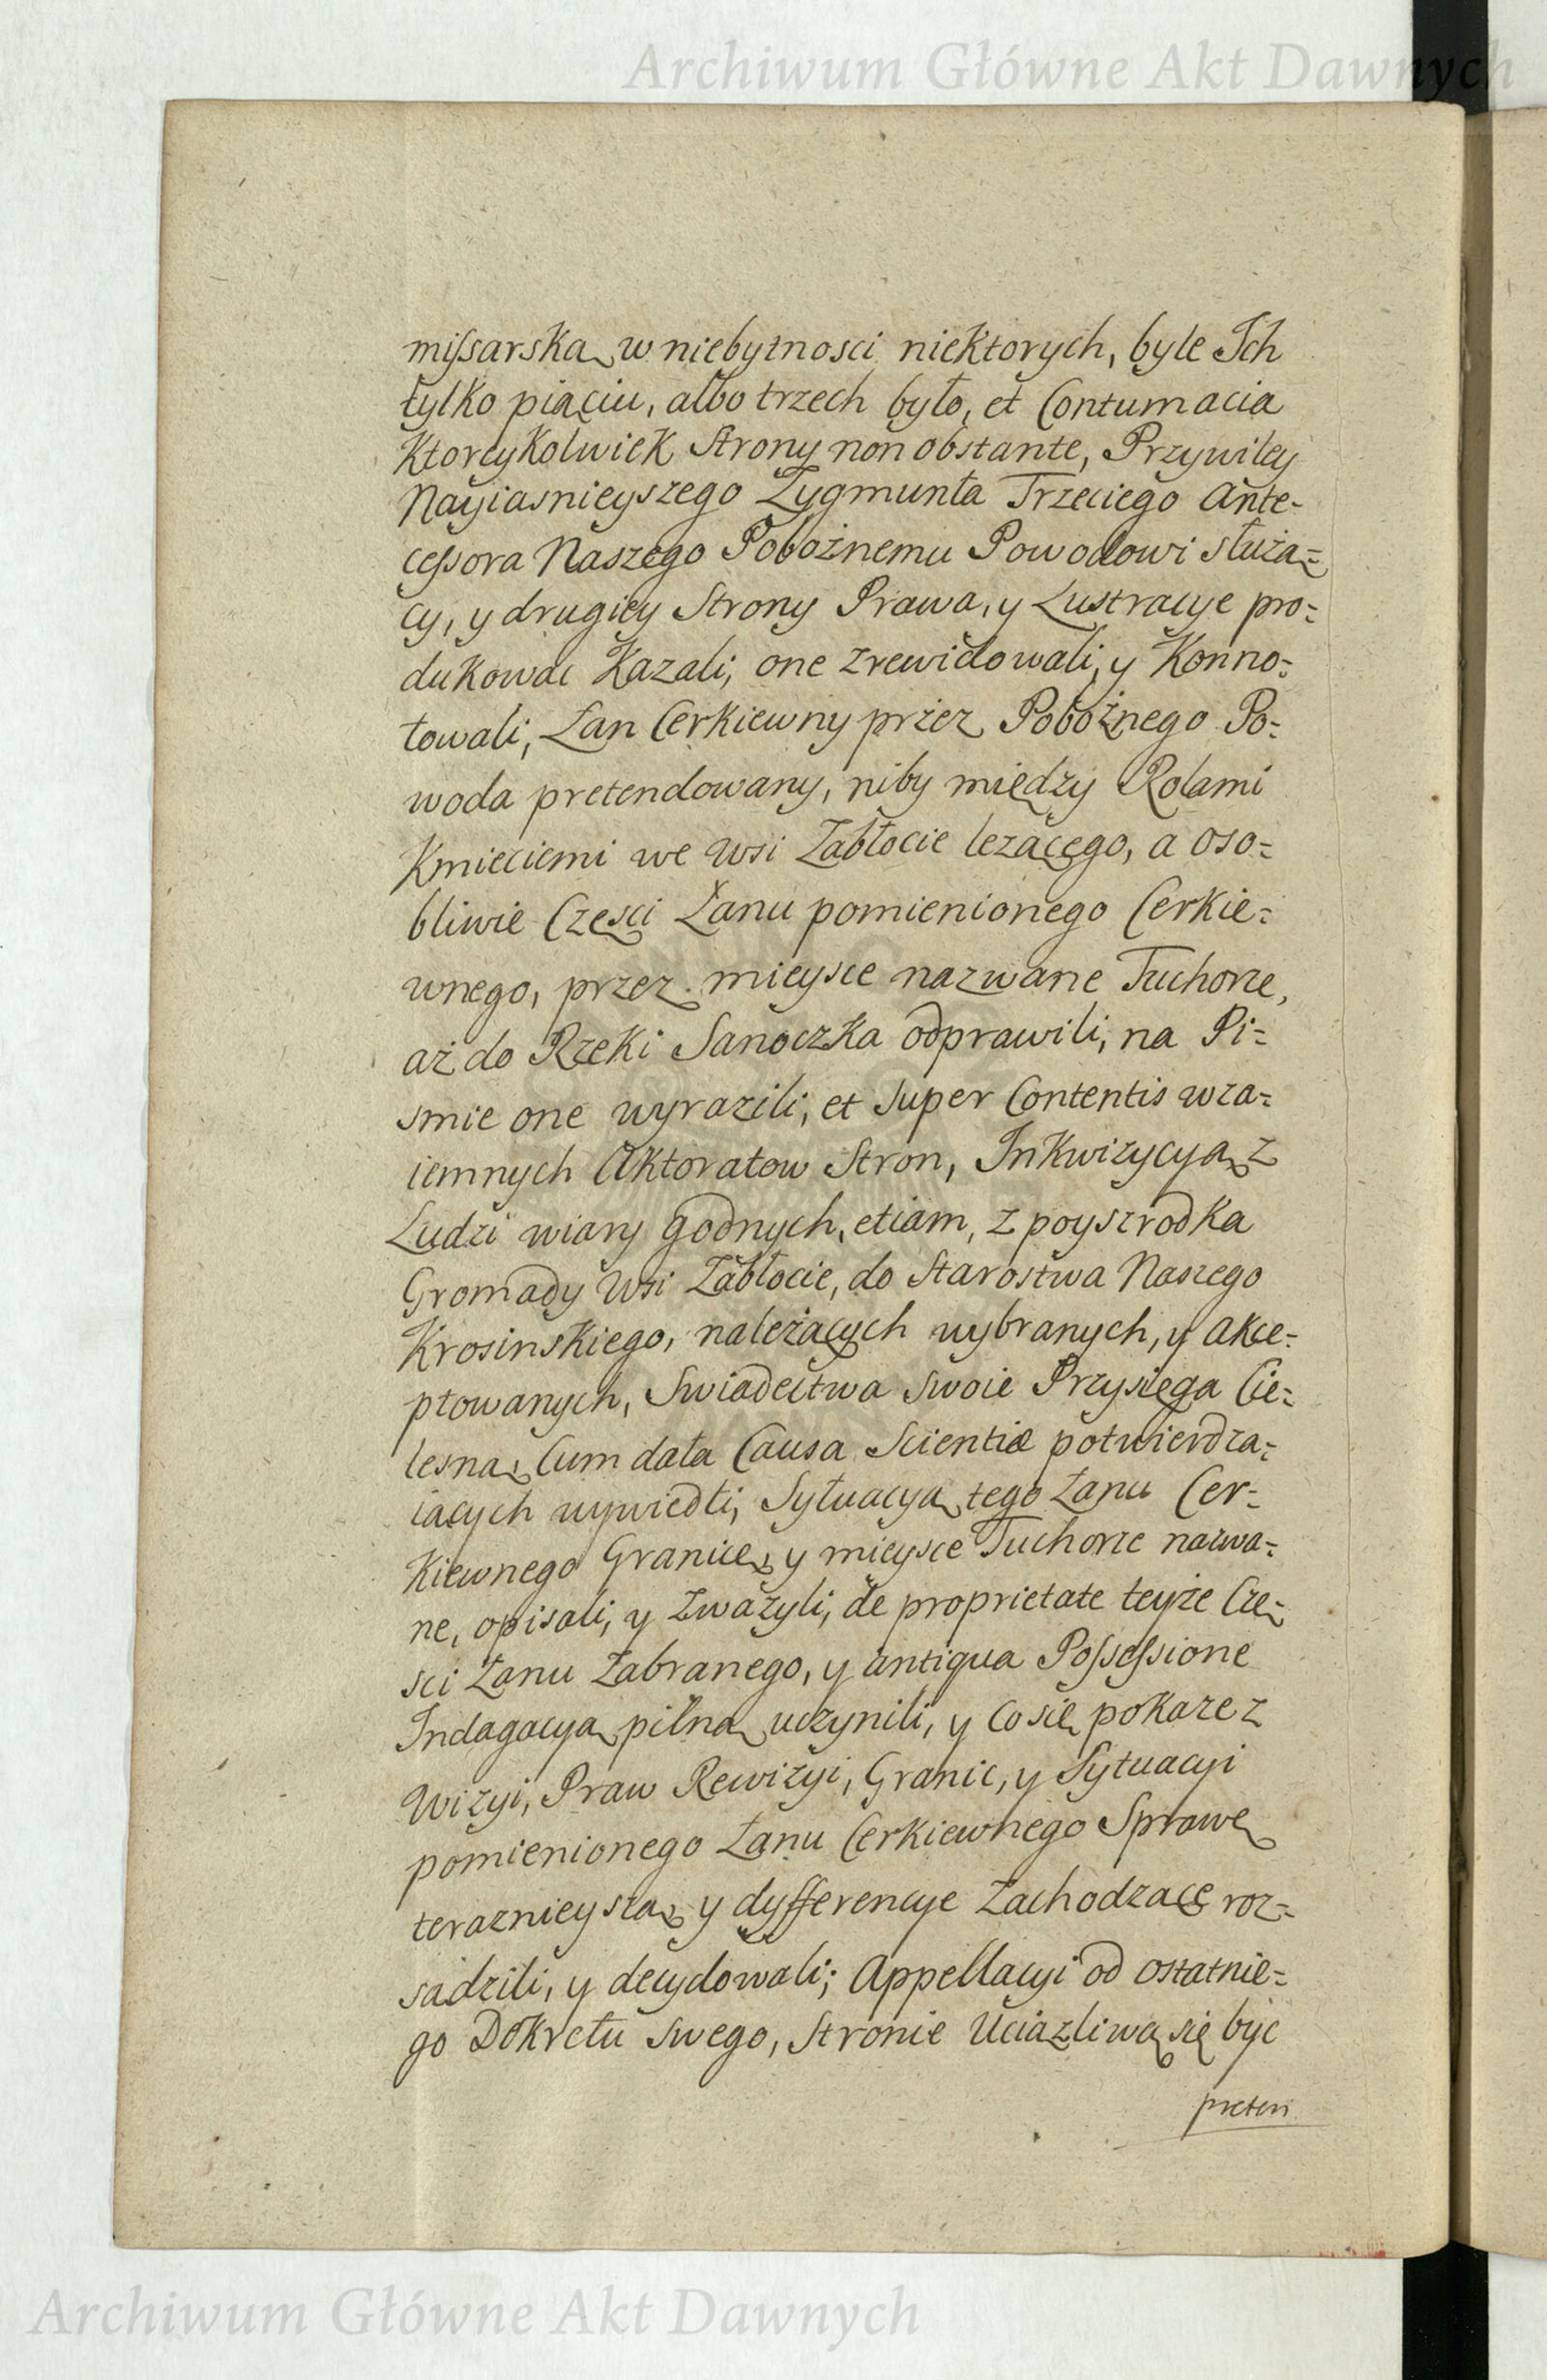 Archiwum Główne Akt Dawnych
missarską w niebytnosci niektorych, byle Ich
tylko piąciu, albo trzech było, et Contumacia
Ktoreykolwiek Strony non obstante, Przywiley
Nayiasnieyszego Zygmunta Trzeciego Ante-
cessora Naszego Pobożnemu Powodowi słuzą=
cy, y drugiey Strony Prawa, y Lustracye pro=
dukowac Kazali, one zrewidowali, y Konno=
towali, Łan Cerkiewny przez Pobożnego Po=
woda pretendowany, niby między Rolami
Kmieciemi we Wsi Zabłocie lezącego, a oso=
bliwie Części Łanu pomienionego Cerkie=
wnego, przez mieysce nazwane Tuchorze,
aż do Rzeki Sanoczka odprawili, na Pi=
smie one wyrazili, et super Contentis wza=
iemnych Aktoratow Stron, Inkwizycyą z
Ludzi wiary godnych, etiam, z poyszrodka
Gromady Wsi Zabłocie, do Starostwa Naszego
Krosinskiego, należących wybranych, y akce=
ptowanych, Swiadectwa swoie Przysięgą Cie=
lesną, Cum data Causa Scientiæ potwierdza=
iących wywiedli, Sytuacyą tego Łanu Cer=
kiewnego Granice, y mieysce Tuchorze nazwa=
ne, opisali, y Zważyli, de proprietate teyże Czę=
sci Łanu Zabranego, y antiqua Possessione
Indagacyą pilną uczynili, y Co się pokaze z
Wizyi, Praw Rewizyi, Granic, y Sytuacyi
pomienionego Łanu Cerkiewnego Sprawę
teraznieyszą, y dyfferencye Zachodzące roz=
sądzili, y decydowali; Appellacyi od ostatnie=
go Dekretu swego, Stronie Uciązliwą się byc
preten
Archiwum Główne Akt Dawnych